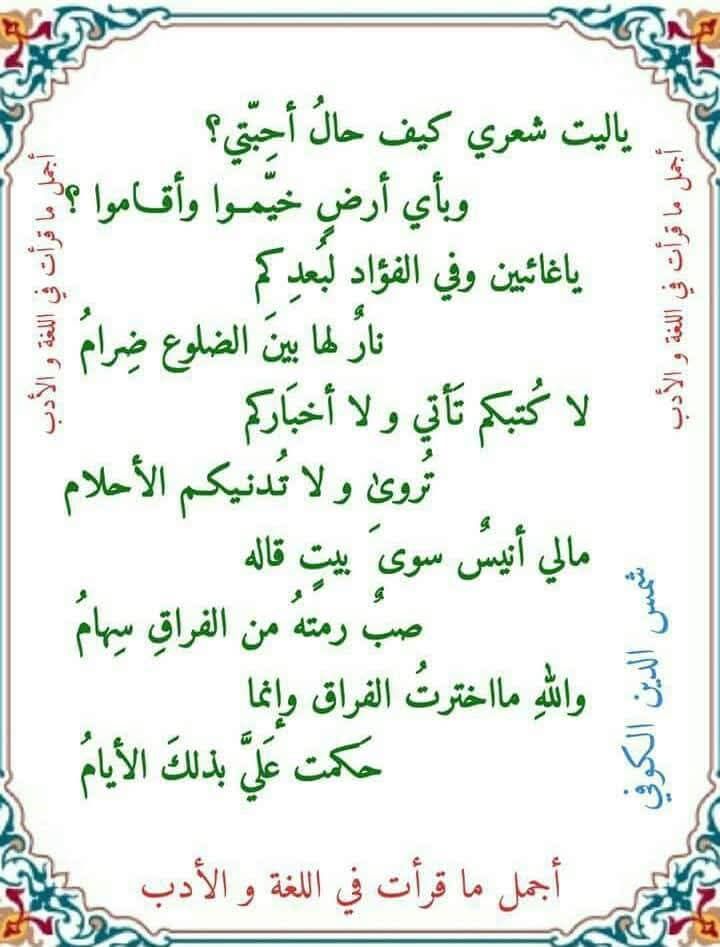 ياليت شعري كيف حالُ أحِبّتي؟
وبأي أرضٍ خيَّمـوا وأقـاموا ؟
ياغائبين وفي الفؤاد لبُعدِكم
نارٌ لها بينَ الضلوع ضِرامُ
لا كُتبكم تَأتي و لا أخبَاركم
تُروىٰ و لا تُدنيكـم الأحلام
مالي أنيسٌ سوىَ بيتٍ قاله
صبٌ رمتهُ من الفراقِ سِهامُ
واللهِ مااخترتُ الفراق وإنما
حَكمت عَليَّ بذلكَ الأيامُ
شمس الدين الكوفي
أجمل ما قرأت في اللغة و الأدب
أجمل ما قرأت في اللغة و الأدب
أجمل ما قرأت في اللغة و الأدب